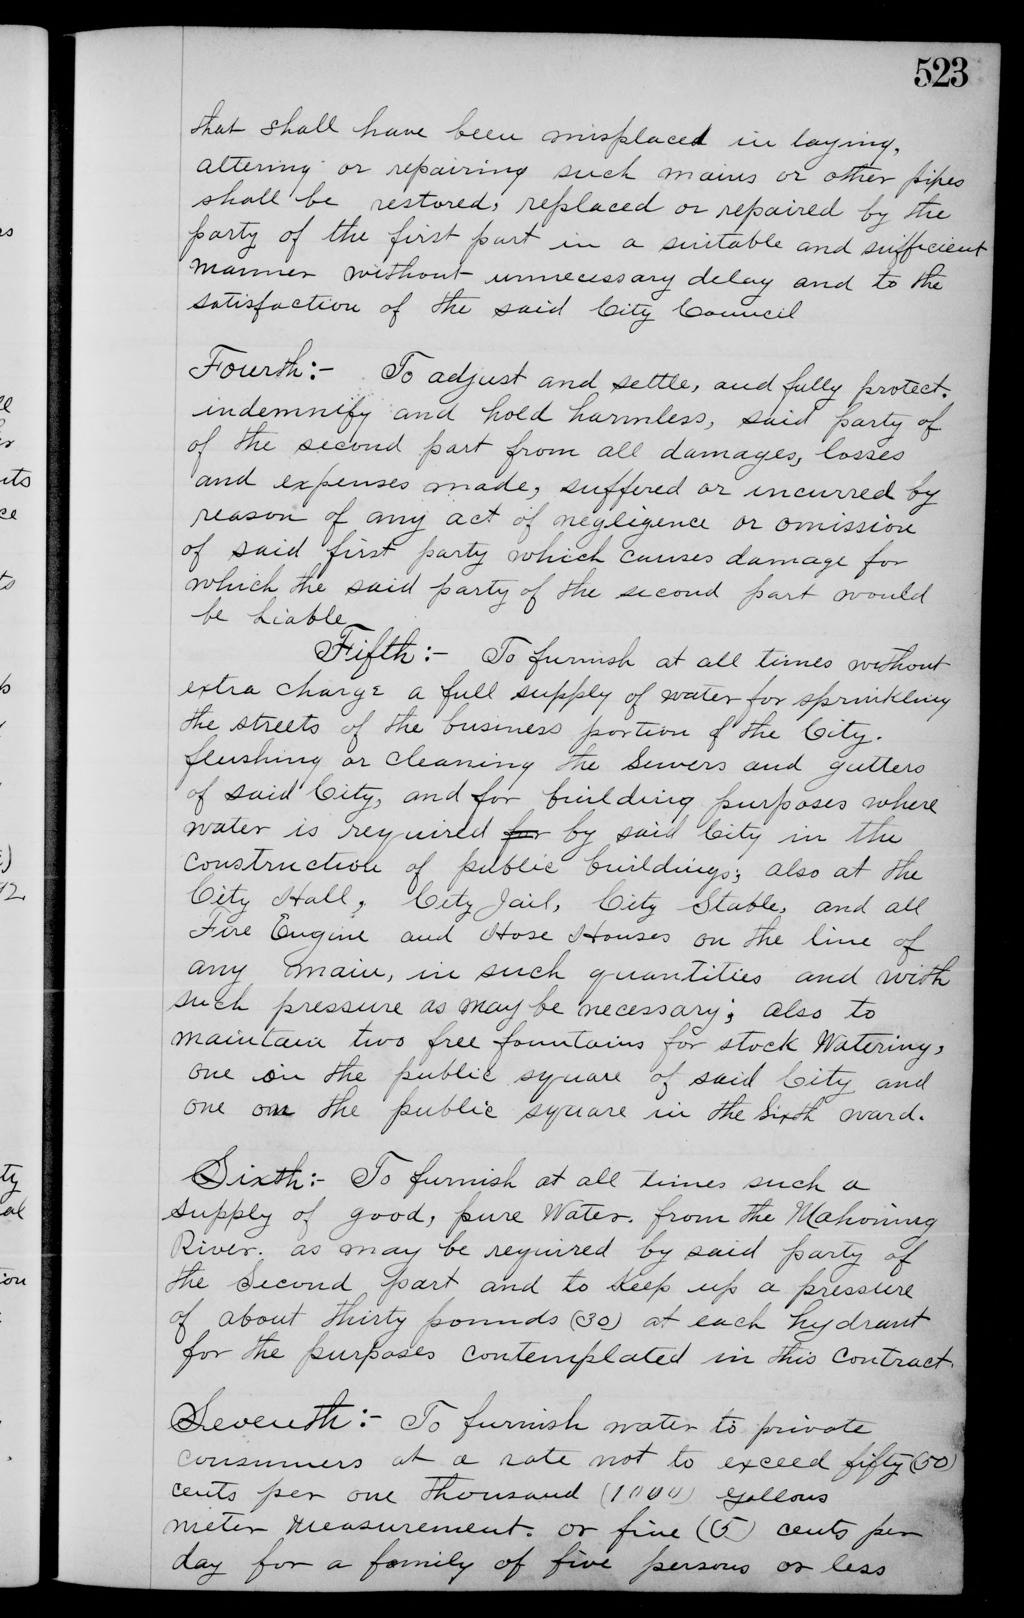 523
that shall have been misplaced in laying,
altering or repairing such mains or other pipes
shall be restored, replaced or repaired by the
party of the first part in a suitable and sufficient
manner without unnecessary delay and to the
satisfaction of the said City Council
Fourth:- To adjust and settle, and fully protect.
indemnify and hold harmless, said party of
of the second part from all damages, losses
and expenses made, suffered or incurred by
reason of any act of negligence or omission
of said first party which causes damage for
which the said party of the second part would
be liable
Fifth:- To furnish at all times without
extra charge a full supply of water for sprinkling
the streets of the business portion of the City.
flushing or cleaning the Sewers and gutters
of said City, and for building purposes where
water is required for by said City in the
construction of public buildings; also at the
City Hall, City Jail, City Stable, and all
Fire Engine and Hose Houses on the line of
any main, in such quantities and with
such pressure as may be necessary; also to
maintain two free fountains for stock Watering,
one on the public square of said City and
one on the public square in the Sixth ward.
Sixth:- To furnish at all times such a
supply of good, pure Water. from the Mahoning
River. as may be required by said party of
the Second part and to keep up a pressure
of about thirty pounds (30) at each hydrant
for the purposes contemplated in this contract.
Seventh:- To furnish water to private
consumers at a rate not to exceed fifty (50)
cents per one thousand (1000) gallons
meter measurement. or five (5) cents per
day for a family of five persons or less